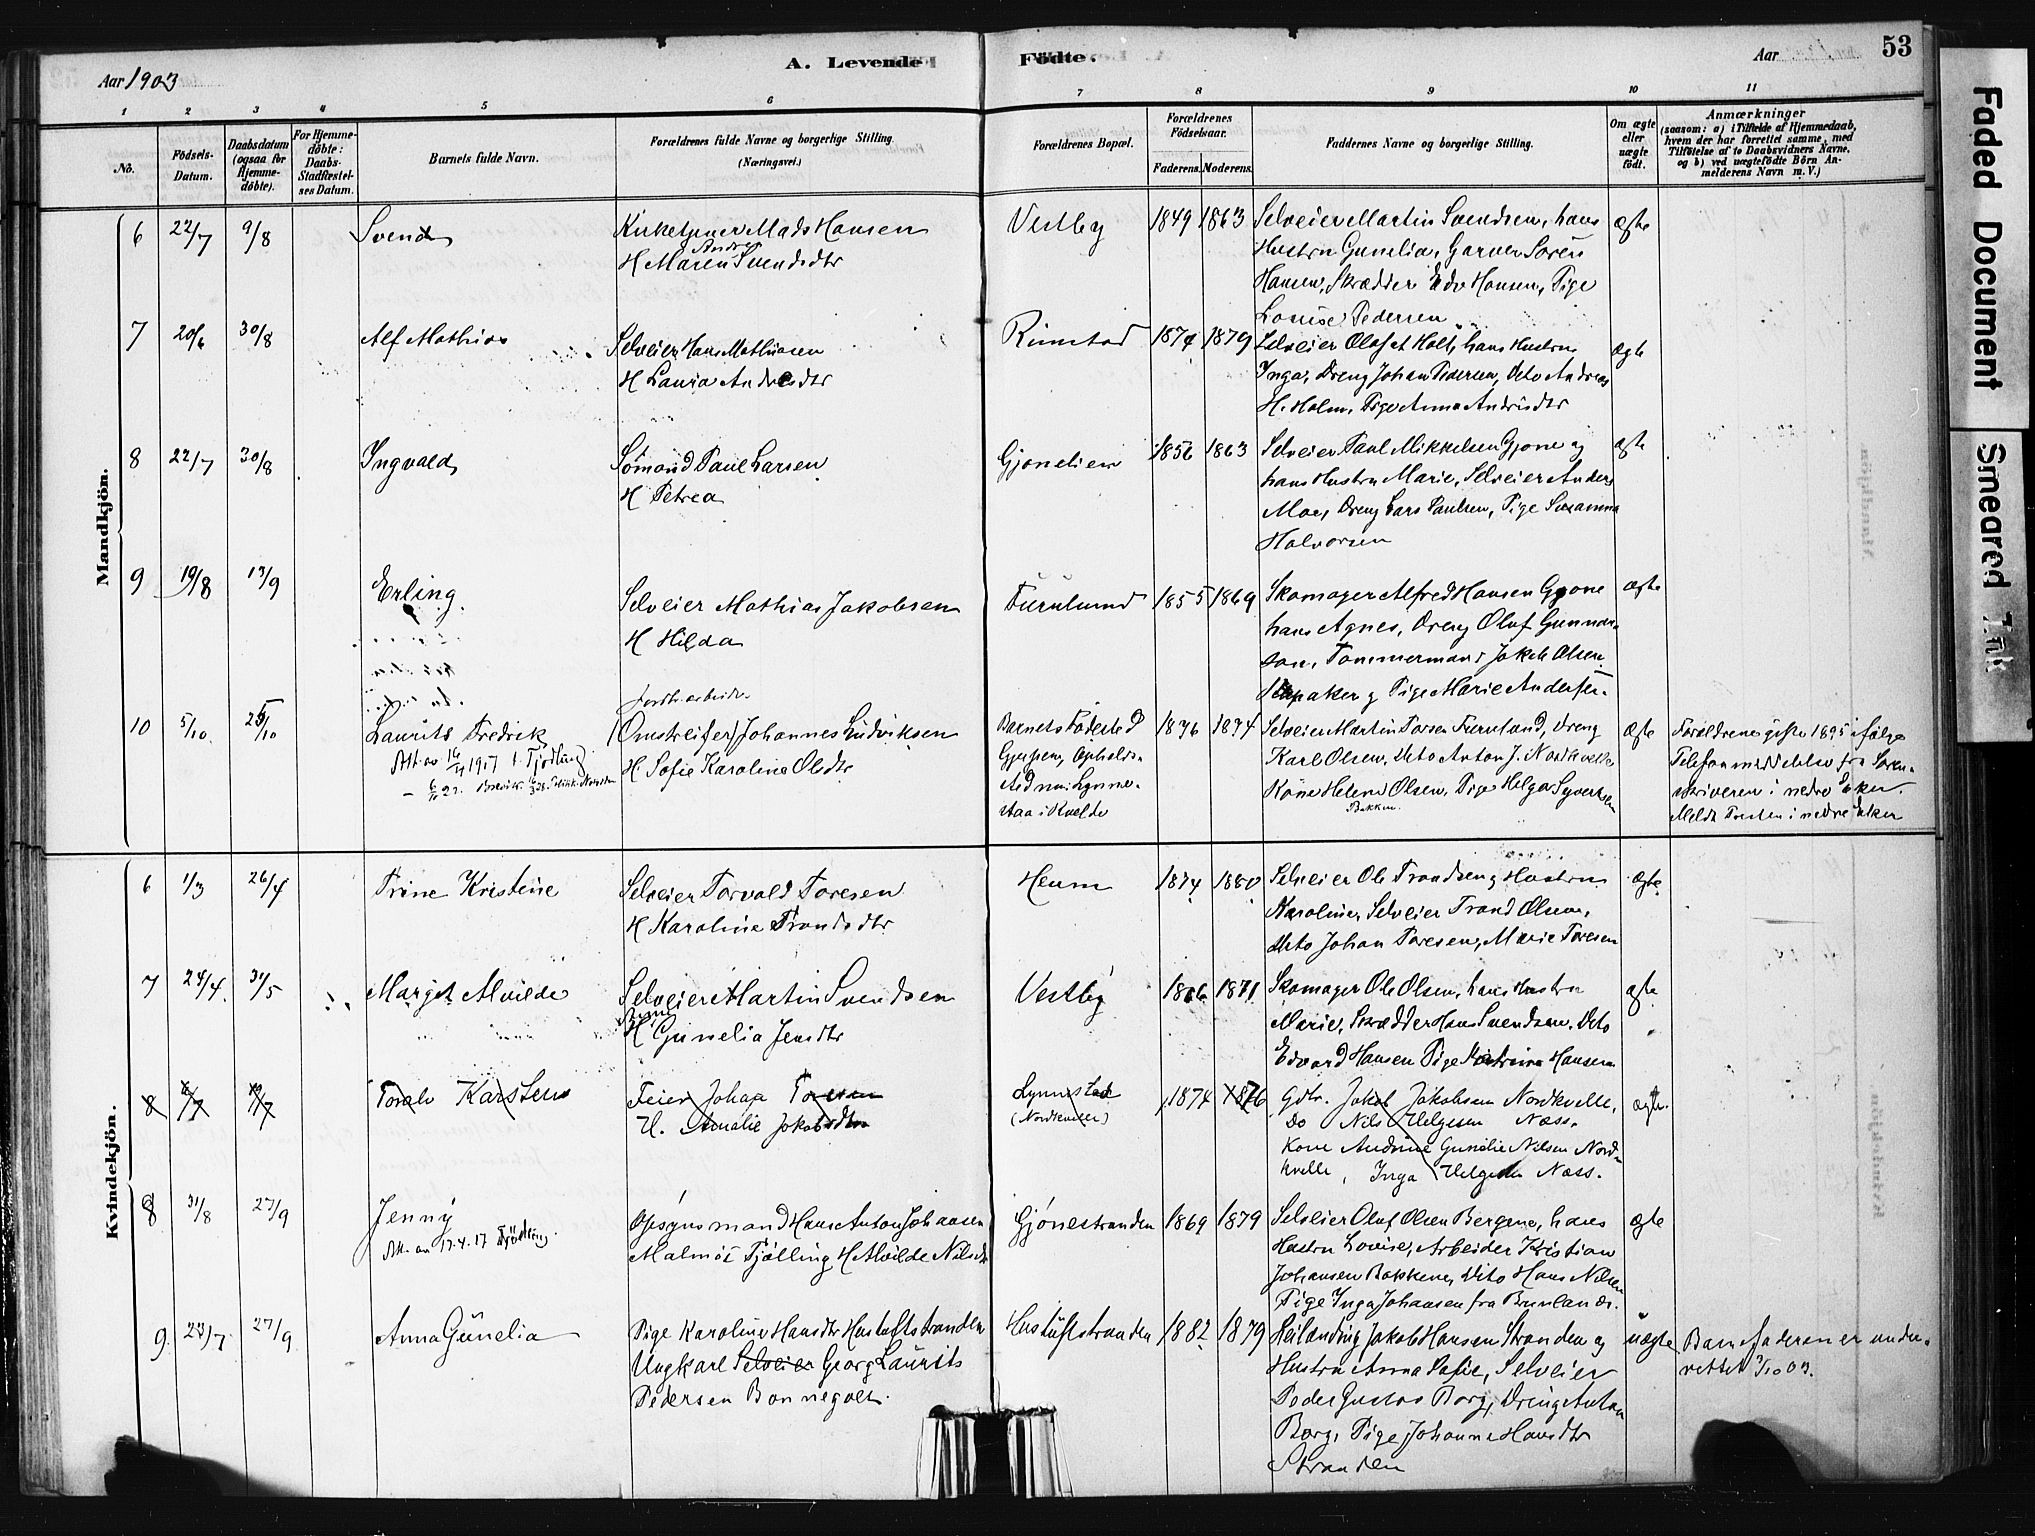 Aar 1903
A. Levende
Fødte.
Aar
53
1 2 3 4 5 6 7 8 9 10 11
No.
Fødsels-Datum.
Daabsdatum (ogsaa for Hjemmedøbte).
For Hjemmedøbte: Daabs-Stadfæstelses Datum.
Barnets fulde Navn.
Forældrenes fulde Navne og borgerlige Stilling. (Næringsvei.)
Forældrenes Bopæl.
Forældrenes Fødselsaar.
Faderens. Moderens.
Faddernes Navne og borgerlige Stilling.
Om ægte eller uægte født.
Anmærkninger
(saasom: a) i Tilfælde af Hjemmedaab, hvem der har forrettet samme, med Tilføielse af to Daabsvidners Navne, og b) ved uægtefødte Børn Anmelderens Navn m. V.)
Mandkjøn.
6 22/7 9/8 Svend
Kirketjener Mads Hansen
H Maren Andrea Svendsdtr
Vestby 1849 1863
Selveier Martin Svendsen, hans
Hustru Gunelia, Garver Søren
Hansen, Skrædder Edv Hansen, Pige
Louise Pedersen
ægte
7 20/6 30/8 Alf Mathias
Selveier Hans Mathiasen
H Laura Andersdtr
Rimstad 1874 1879
Selveier Olaf et Holt, hans Hustru
Inga, Dreng Johan Pedersen, Dito Andreas
H. Holm, Pige Anna Andrisdtr
ægte
8 22/7 30/8 Ingvald
Sømand Paul Larsen
H Petrea
Gjonelien 1856 1863
Selveier Paul Mikkelsen Gjone og
hans Hustru Marie, Selveier Anders
Moe, Dreng Lars Paulsen, Pige Susanna
Halvorsen
ægte
9 19/8 13/9 Erling
Selveier Mathias Jakobsen
H Hilda
Furulund 1855 1869
Skomager Alfred Hansen Gjone
hans Agnes, Dreng Olaf Gunnar-
son, Tømmermand Jakob Olsen
aker g Pige Marie Andersen.
ægte
10 5/10 25/10 Laurits Fredrik
Att. av 16/4 1917 t. Tjødling
Jordbarbeider
(Omstreifer) Johannes Ludviksen
H. Sofie Karoline Olsdtr
Barnets Fødested
Gjerpen, Opholds-
sted nu: Lynne-
staa i Kvelde
1876 1874
Selveier Martin Torsen Furulund, Dreng
Karl Olsen, Dito Anton J. Nordkvelle
Kone Helene Olsen, Pige Helga Syvertsen
Bakken.
ægte
Forældrene gifte 1895 ifølge
Telefonmeddelelse fra Soren-
skriveren i nedre Eker.
Meldt Presten i nedre Eker
Kvindekjøn.
6 1/3 26/4 Trine Kristine
Selveier Torvald Toresen
H Karoline Trondsdtr
Heum 1874 1880
Selveier Ole Trondsen og Hustru
Karoline, Selveier Trond Olsen,
Dito Johan Toresen, Marie Toresen
ægte
7 24/4 31/5 Margit Alvilde
Selveier Martin Svendsen
H Gunelia Jensdtr
Vestby 1866 1871
Skomager Ole Olsen, hans Hustru
Marie, Skrædder Hans Svendsen, Dito
Edvard Hansen Pige Katrine Hansen
ægte
8 Toralv Karsten
Feier Johan Toresen
H. Amalie Jakobsdtr
Lynnestad
(Nordkvelle)
1874 1876
Gdbr. Jakob Jakobsen Nordkvelle,
Do Nils Helgesen Næss.
Kone Andrine Gunelie Nilsen Nord-
kvelle, Inga Helgesen Næss.
ægte
8 31/8 27/9 Jenny
Att. av 17.4.17 Tjødling
Opsynsmand Hans Anton Johansen
Malmøi Tjølling H Alvilde Nilsdtr
Gjønestranden 1869 1879
Selveier Oluf Olsen Bergene, hans
Hustru Lovise, Arbeider Kristian
Johansen Bakkene, Dito Hans Nilsen
Pige Inga Johansen fra Brunlanæs.
ægte
9 23/7 27/9 Anna Gunelia
Pige Karoline Hansdtr Hustuftstranden
Ungkarl Selveier Georg Laurits
Pedersen Bonnegolt.
Hustuftstranden 1882 1879
Jakob Hansen Stranden og
Hustru Anna Sofie, Selveier
Peder Gustav Borg, Dreng Anton
Borg, Pige Johanne Hansdtr
Stranden
uægte
Barnefaderen er under-
rettet 3/10 03.
Faded Document
Smeared Ink